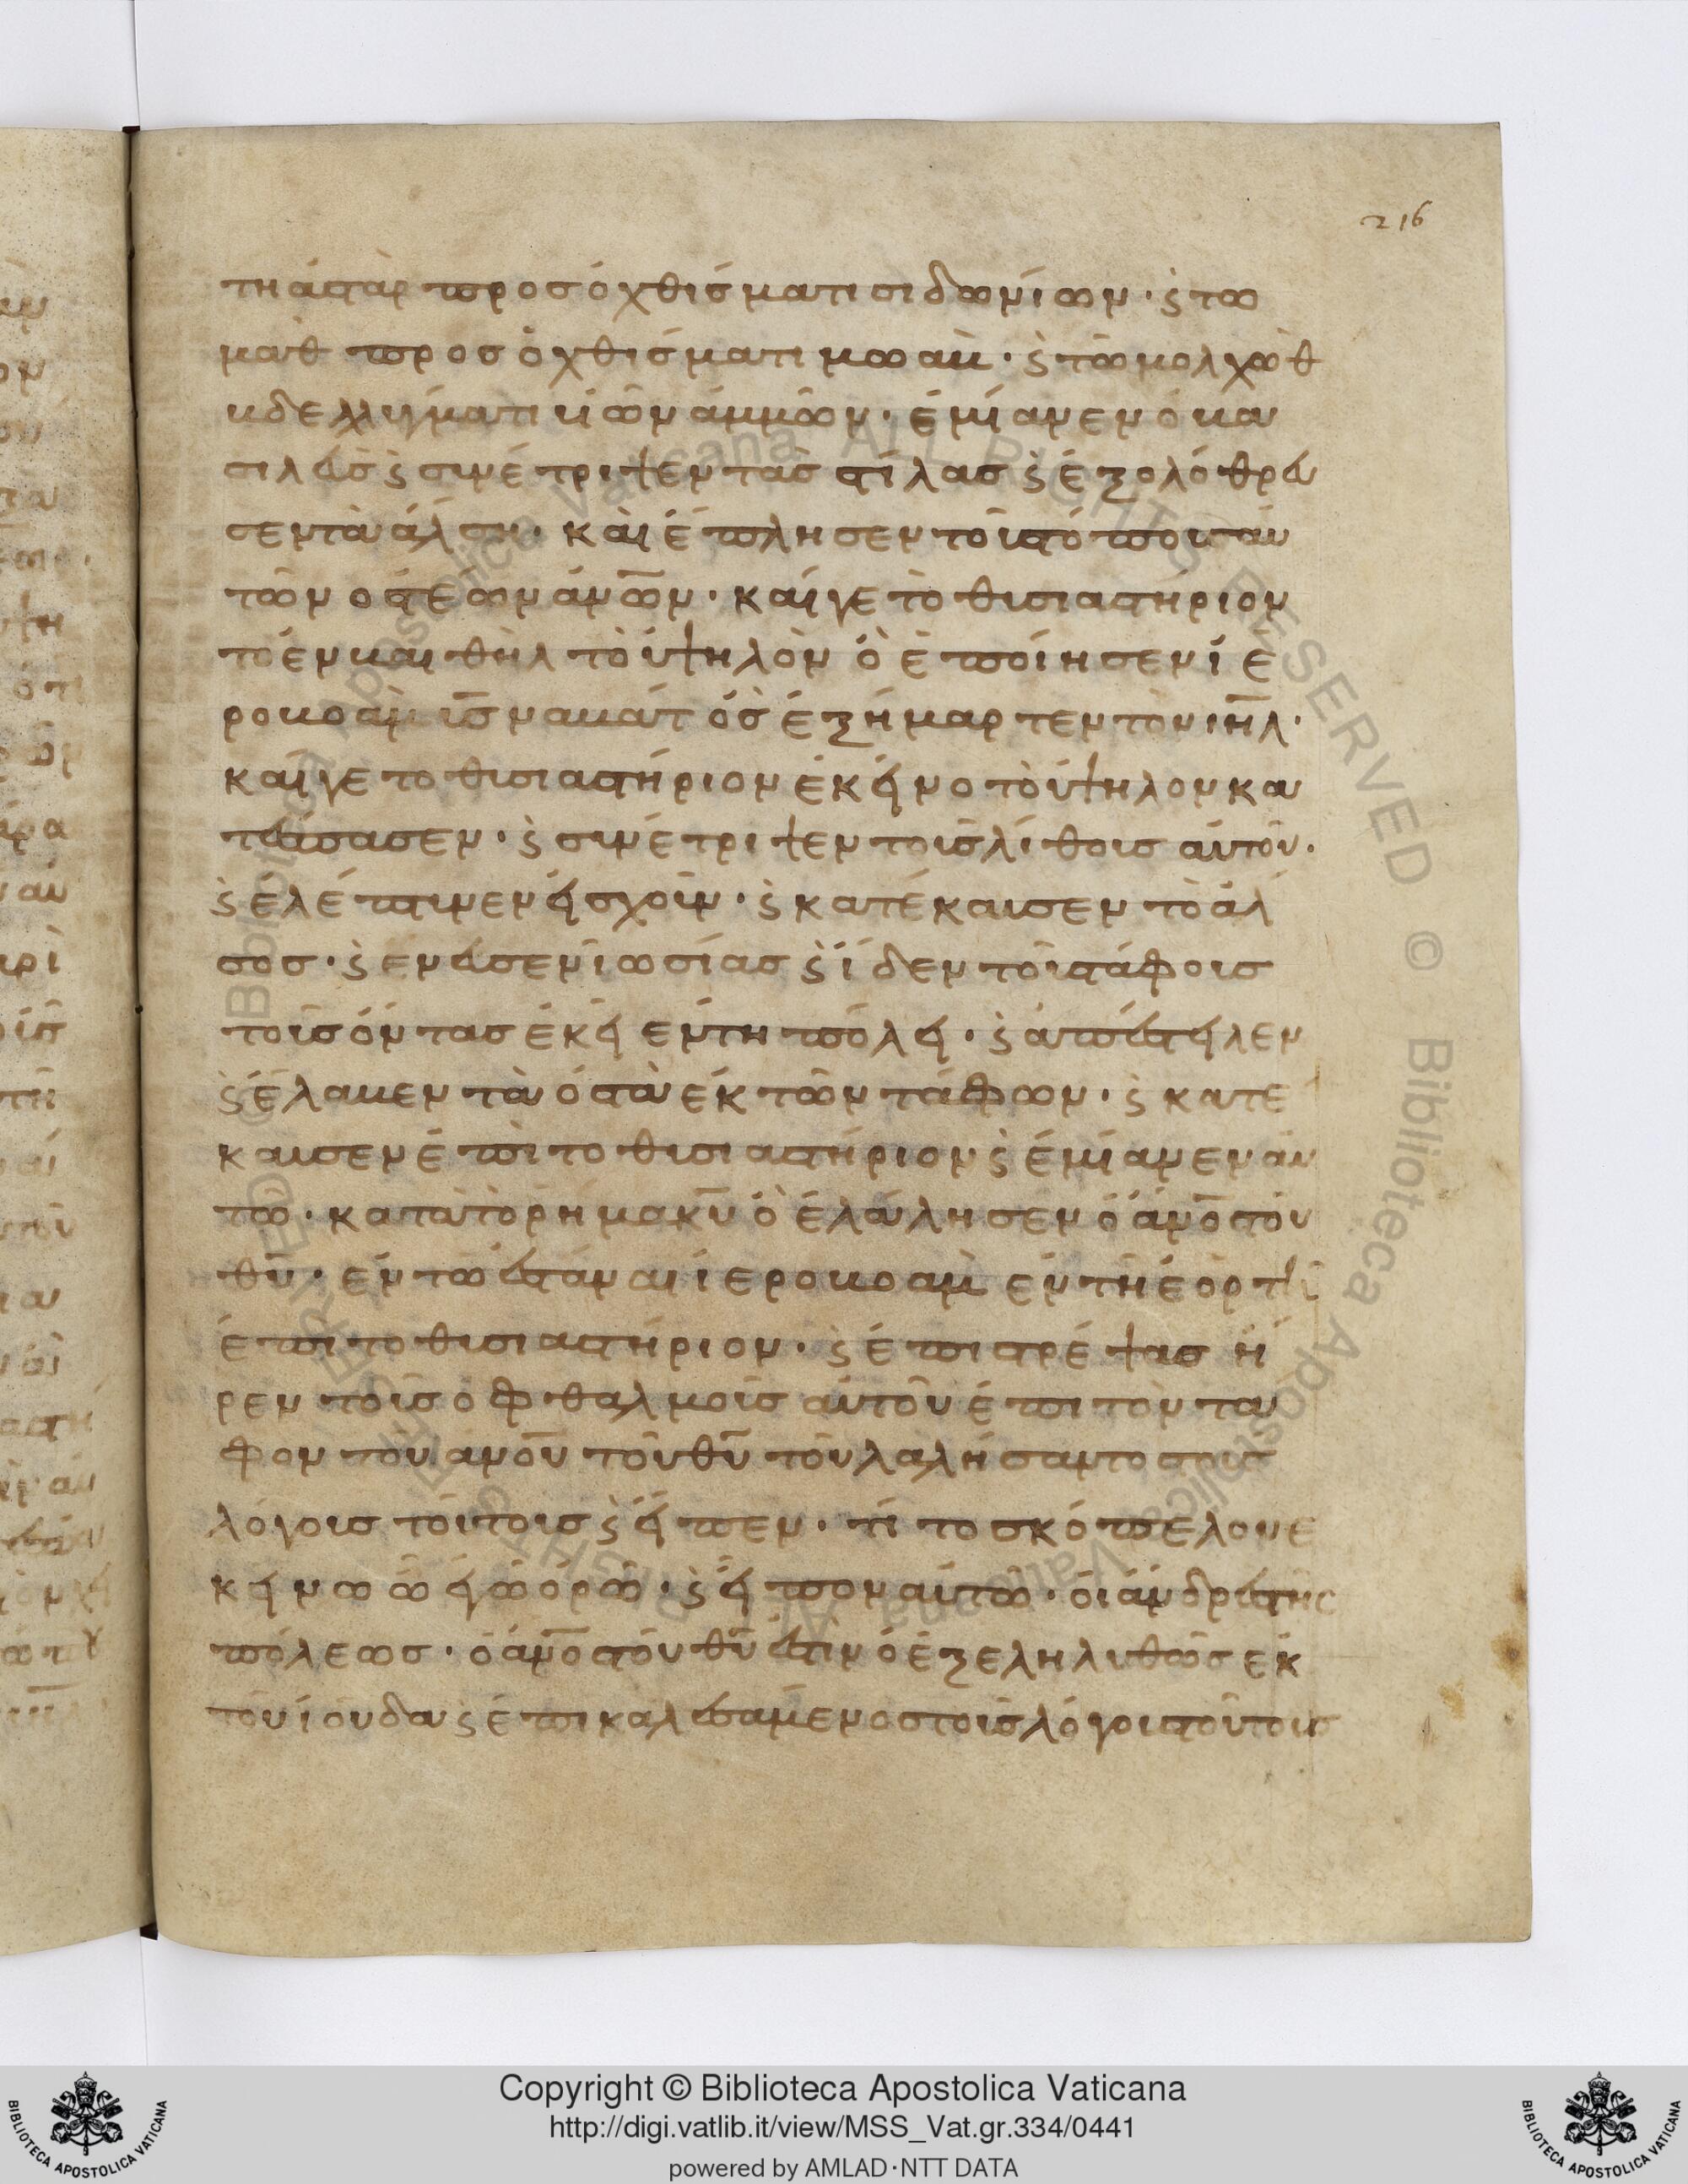 216
τη ἀσταρ προσοχθίσματι σιδωνίων · ϛ τω
μαθ προσοχθίσματι μωαβ · ϛ τῶ μολχωθ
βδελλύγματι υἱῶν ἀμμῶν · ἐμίανεν ὁ βα
σιλεὺς ϛ συνέτριψεν τὰς στίλας ϛ ἐξολόθρευ
σεν τὰ ἄλση · καὶ ἔπλησεν τοὺς τόπους αὐ
τῶν ὀστέων ἀν̅ω̅ν · καί γε τὸ θυσιαστήριον
τὸ ἐν βαιθὴλ τὸ ὑψηλὸν ὃ ἐποίησεν ἱε
ροβοὰμ υ̅ς̅ ναβάτ ὃς ἐξήμαρτεν τὸν ι̅η̅λ ·
καί γε το θυσιαστήριον ἐκεῖνο τὸ ὑψηλον κα
τέσπασεν · ϛ συνέτριψεν τοὺς λίθους αὐτοῦ ·
ϛ ἐλέπτυνεν εἰς χοῦν · ϛ κατέκαυσεν τὸ ἄλ
σος · ϛ ἐνευσεν ἰωσίας ϛ ἴδεν τοὺς τάφους
τοὺς ὄντας ἐκεῖ ἐν τη πόλει · ϛ ἀπέστειλεν
ϛ ἔλαβεν τὰ ὀστὰ ἐκ τῶν τάφων · ϛ κατέ
καυσεν ἐπὶ το θυσιαστήριον ϛ ἐμίανεν αὐ
τῶ · κατὰ τὸ ρῆμα κ̅υ̅ ὃ ἐλάλησεν ὁ ἀν̅ο̅ς τοῦ
θ̅υ̅ · ἐν τῶ ἑστάναι ἱεροβοὰμ ἐν τῆ ἑορτῆ
ἐπι το θυσιαστήριον · ϛ ἐπιστρέψας ἦ
ρεν τοὺς ὀφθαλμοὺς αὐτοῦ ἐπι τὸν τά
φον τοῦ ἀν̅ο̅υ τοῦ θ̅υ̅ τοῦ λαλήσαντος τοὺς
λόγους τούτους ϛ εἶπεν · τί το σκόπελον ἐ
κεῖνω ὧ ἐγὼ ὁρῶ · ϛ εἶπον αὐτῶ · οἱ ἄνδρες τῆς
πόλεως · ὁ ἀν̅ο̅ς τοῦ θ̅υ̅ ἐστὶν ὁ ἐξεληλυθὼς ἐκ
τοῦ ἰούδα ϛ ἐπικαλεσάμενος τοὺς λόγους τούτους
Copyright © Biblioteca Apostolica Vaticana
http://digi.vatlib.it/view/MSS_Vat.gr.334/0441
powered by AMLAD·NTT DATA